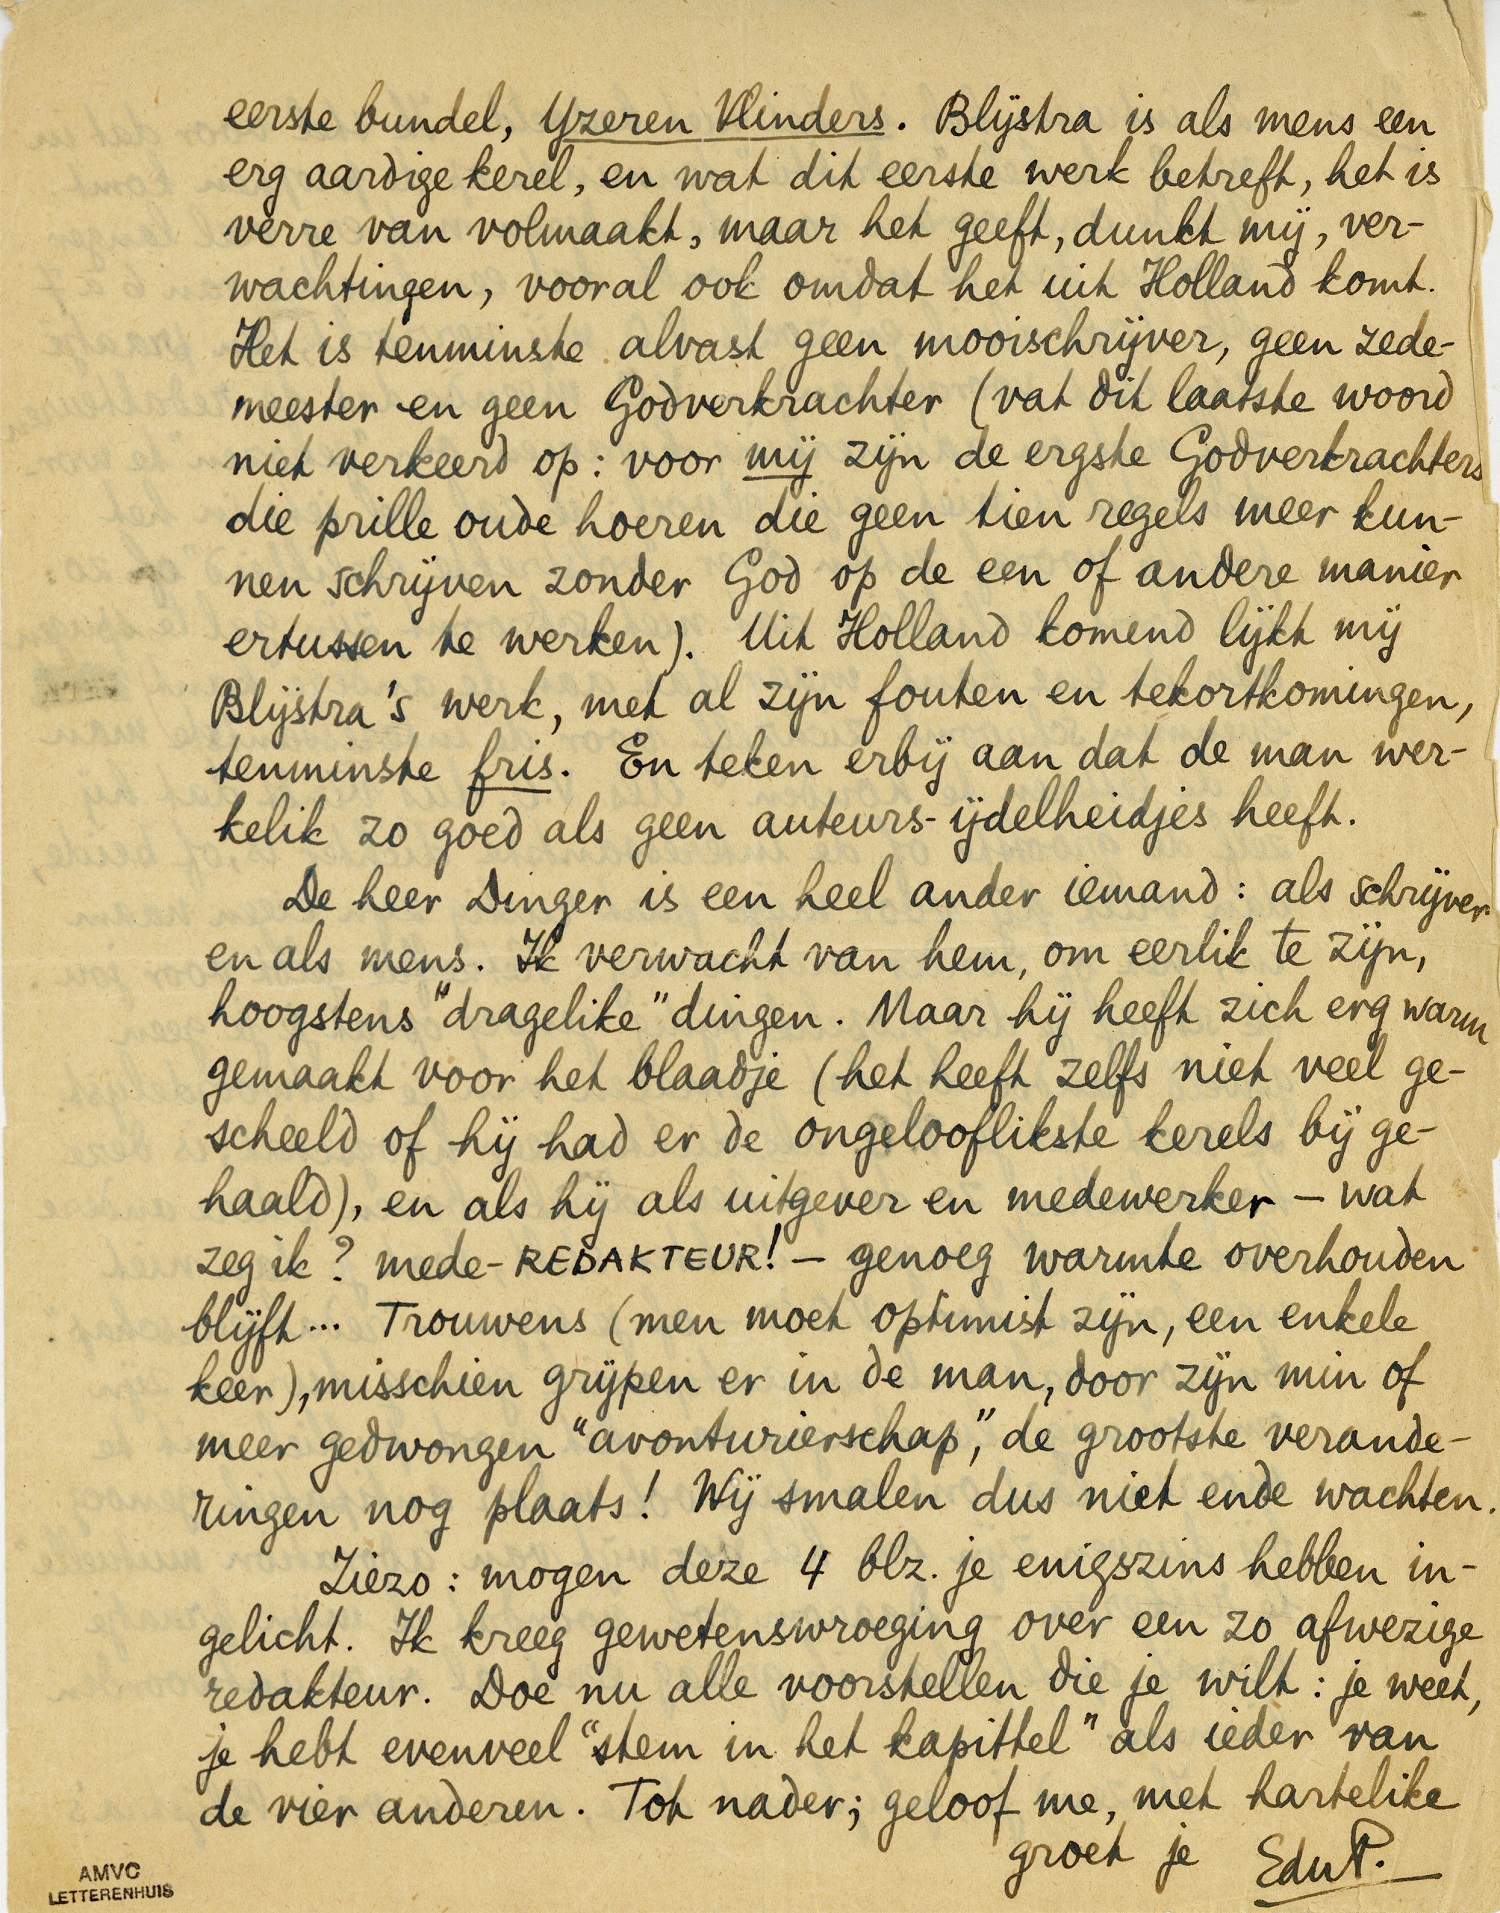 eerste bundel, Yzeren Vlinders. Blijstra is als mens een
erg aardige kerel, en wat dit eerste werk betreft, het is
verre van volmaakt, maar het geeft, dunkt mij, ver-
wachtingen, vooral ook omdat het uit Holland komt.
Het is tenminste alvast geen mooischrijver, geen zede-
meester en geen Godverkrachter (vat dit laatste woord
niet verkeerd op: voor mij zijn de ergste Godverkrachters
die prille oude hoeren die geen tien regels meer kun-
nen schrijven zonder God op de een of andere manier
ertussen te werken). Uit Holland komend lijkt mij
Blijstra's werk, met al zijn fouten en tekortkomingen,
tenminste fris. En teken erbij aan dat de man wer-
kelik zo goed als geen auteurs-ijdelheidjes heeft.
De heer Dinger is een heel ander iemand: als schrijver
en als mens. Ik verwacht van hem, om eerlik te zijn,
hoogstens "dragelike" dingen. Maar hij heeft zich erg warm
gemaakt voor het blaadje (het heeft zelfs niet veel ge-
scheeld of hij had er de ongelooflikste kerels bij ge-
haald), en als hij als uitgever en medewerker – wat
zeg ik? mede-REDAKTEUR! – genoeg warmte overhouden
blijft... Trouwens (men moet optimist zijn, een enkele
keer), misschien grijpen er in de man, door zijn min of
meer gedwongen "avonturierschap", de grootste verande-
ringen nog plaats! Wij smalen dus niet ende wachten.
Ziezo: mogen deze 4 blz. je enigszins hebben in-
gelicht. Ik kreeg gewetenswroeging over een zo afwezige
redakteur. Doe nu alle voorstellen die je wilt: je weet,
je hebt evenveel "stem in het kapittel" als ieder van
de vier anderen. Tot nader; geloof me, met hartelike
groet je EduP.
AMVC
LETTERENHUIS